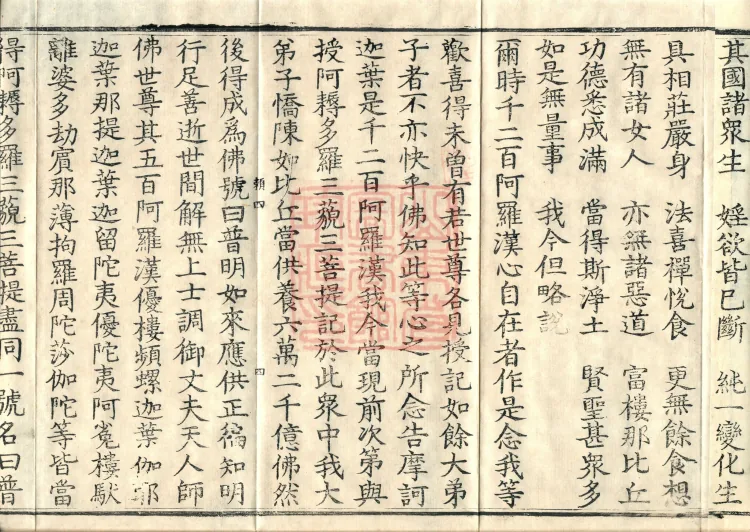 其國諸衆生　婬欲皆已斷　純一變化生
具相莊嚴身　法喜禪悅食　更無餘食想
無有諸女人　亦無諸惡道　富樓那比丘
功德悉成滿　當得斯淨土　賢聖甚衆多
如是無量事　我今但略說
爾時千二百阿羅漢心自在者作是念我等
歡喜得未曾有若世尊各見授記如餘大弟
子者不亦快乎佛知此等心之所念告摩訶
迦葉是千二百阿羅漢我今當現前次第與
授阿耨多羅三藐三菩提記於此衆中我大
弟子憍陳如比丘當供養六萬二千億佛然
類四
四
後得成爲佛號曰普明如來應供正徧知明
行足善逝世間解無上士調御丈夫天人師
佛世尊其五百阿羅漢優樓頻螺迦葉伽耶
迦葉那提迦葉迦留陀夷優陀夷阿㝹樓馱
離婆多劫賓那薄拘羅周陀莎伽陀等皆當
得阿耨多羅三藐三菩提盡同一號名曰普